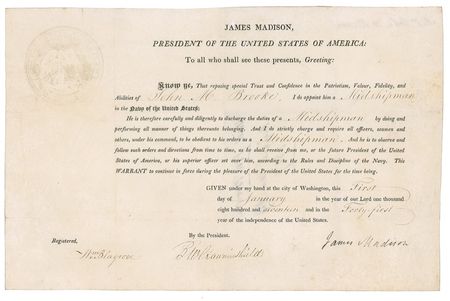 JAMES MADISON,
PRESIDENT OF THE UNITED STATES OF AMERICA:
To all who shall see these presents, Greeting:
Know ye, That reposing special Trust and Confidence in the Patriotism, Valour, Fidelity, and
Abilities of John M. Brooke, I do appoint him a Midshipman
in the Navy of the United States:
He is therefore carefully and diligently to discharge the duties of a Midshipman by doing and
performing all manner of things thereunto belonging. And I do strictly charge and require all officers, seamen and
others, under his command, to be obedient to his orders as a Midshipman. And he is to observe and
follow such orders and directions from time to time, as he shall receive from me, or the future President of the
United States of America, or his superior officer set over him, according to the Rules and Discipline of the Navy. This
WARRANT to continue in force during the pleasure of the President of the United States for the time being.
GIVEN under my hand at the city of Washington, this First
day of January in the year of our Lord one thousand
eight hundred and seventeen and in the Forty-first
year of the independence of the United States.
By the President. James Madison
Registered, BW Crowninshield